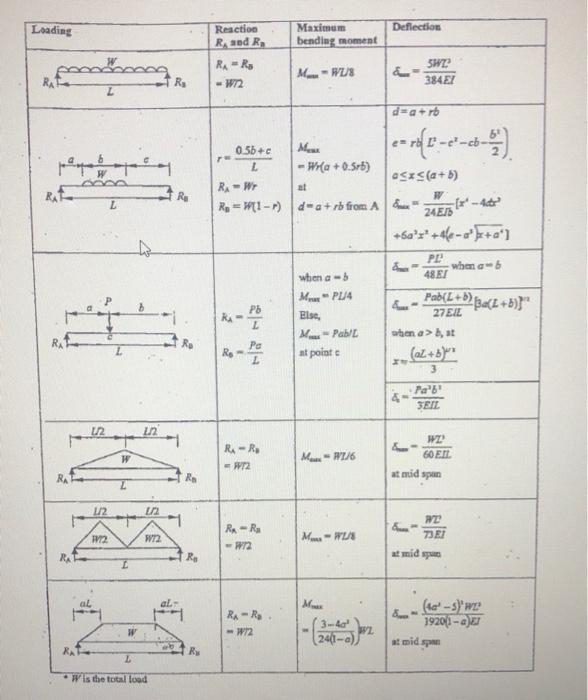 Loading
Reaction
R_A and R_B
Maximum
bending moment
Deflection
W
R_A
R_B
L
R_A = R_B
= W/2
M_max = WL/8
δ_max = 5WL³
384EI
a
b
c
W
R_A
R_B
L
r = 0.5b+c
L
R_A = Wr
R_B = W(1-r)
M_max
= Wr(a + 0.5rb)
at
d = a + rb from A
d = a + rb
e = rb( L² - c² - cb - b²
2 )
a≤x≤(a+b)
δ_max = W
24EIb [x⁴ - 4dx³
+6a²x² +4(e - a³)x + a⁴]
P
a
b
c
R_A
R_B
L
R_A = Pb
L
R_B = Pa
L
when a = b
M_max = PL/4
Else,
M_max = Pab/L
at point c
δ_max = PL³
48EI when a = b
δ_max = Pab(L+b)
27EIL [3a(L+b)]^1/2
when a > b, at
x = (aL+b)^1/2
3
δ_c = Pa²b²
3EIL
L/2
L/2
W
R_A
R_B
L
R_A = R_B
= W/2
M_max = WL/6
δ_max = WL³
60EIL
at mid span
L/2
L/2
W/2
W/2
R_A
R_B
L
R_A = R_B
= W/2
M_max = WL/8
δ_max = WL³
73EI
at mid span
aL
aL
W
R_A
R_B
L
R_A = R_B
= W/2
M_max
= ( 3-4a²
24(1-a) )WL
δ_max = (4a² - 5)² WL³
1920(1-a)EI
at mid span
* W is the total load